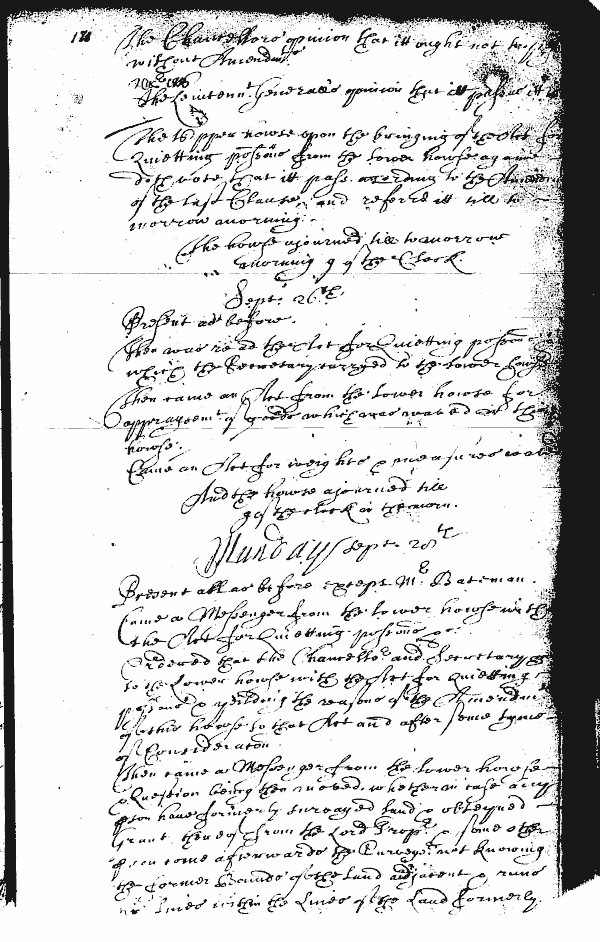 The Chancellors opinion that itt ought not to
without Amendmt
The Leiutennt Generalls opinion that itt passe
The Upper howse upon the bringing of the Act for
Quietting possons from the lower howse againe
doth vote that itt pass according to the Amendmt
of the last Clause, and referrs it till to
morrow morning.
The howse ajourned till to morrow
morning 9 of the Clock
Septr 26th
Present as before.
Then was read the Act for Quietting possons
which the Secretary carryed to the lower howse
Then came an Act from the lower howse for
appraysemt of goods which was in the
howse.
Came an Act for weights & measures
And the howse ajourned till
9 of the clock in the morn.
Munday Septr 28th
Present all as before except Mr Bateman.
Came a Messenger from the lower howse with
the Act for Quietting possons &c:
Ordered that the Chancellor and Secretary
to the Lower howse with the Act for Quietting
possons & yeilding the reasons of the Amendmt
of this howse to that Act and after some tyme
of Consideraton
Then came a Messenger from the lower howse
a Question being then moved whether in case any
pson have formerly surveyed land & obteyned
Grant thereof from the Lord Propr & some other
pson come afterwards the Surveyor not knowing
the former Bounds of the land adjacent & runs
his lines within the Lines of the Land formerly